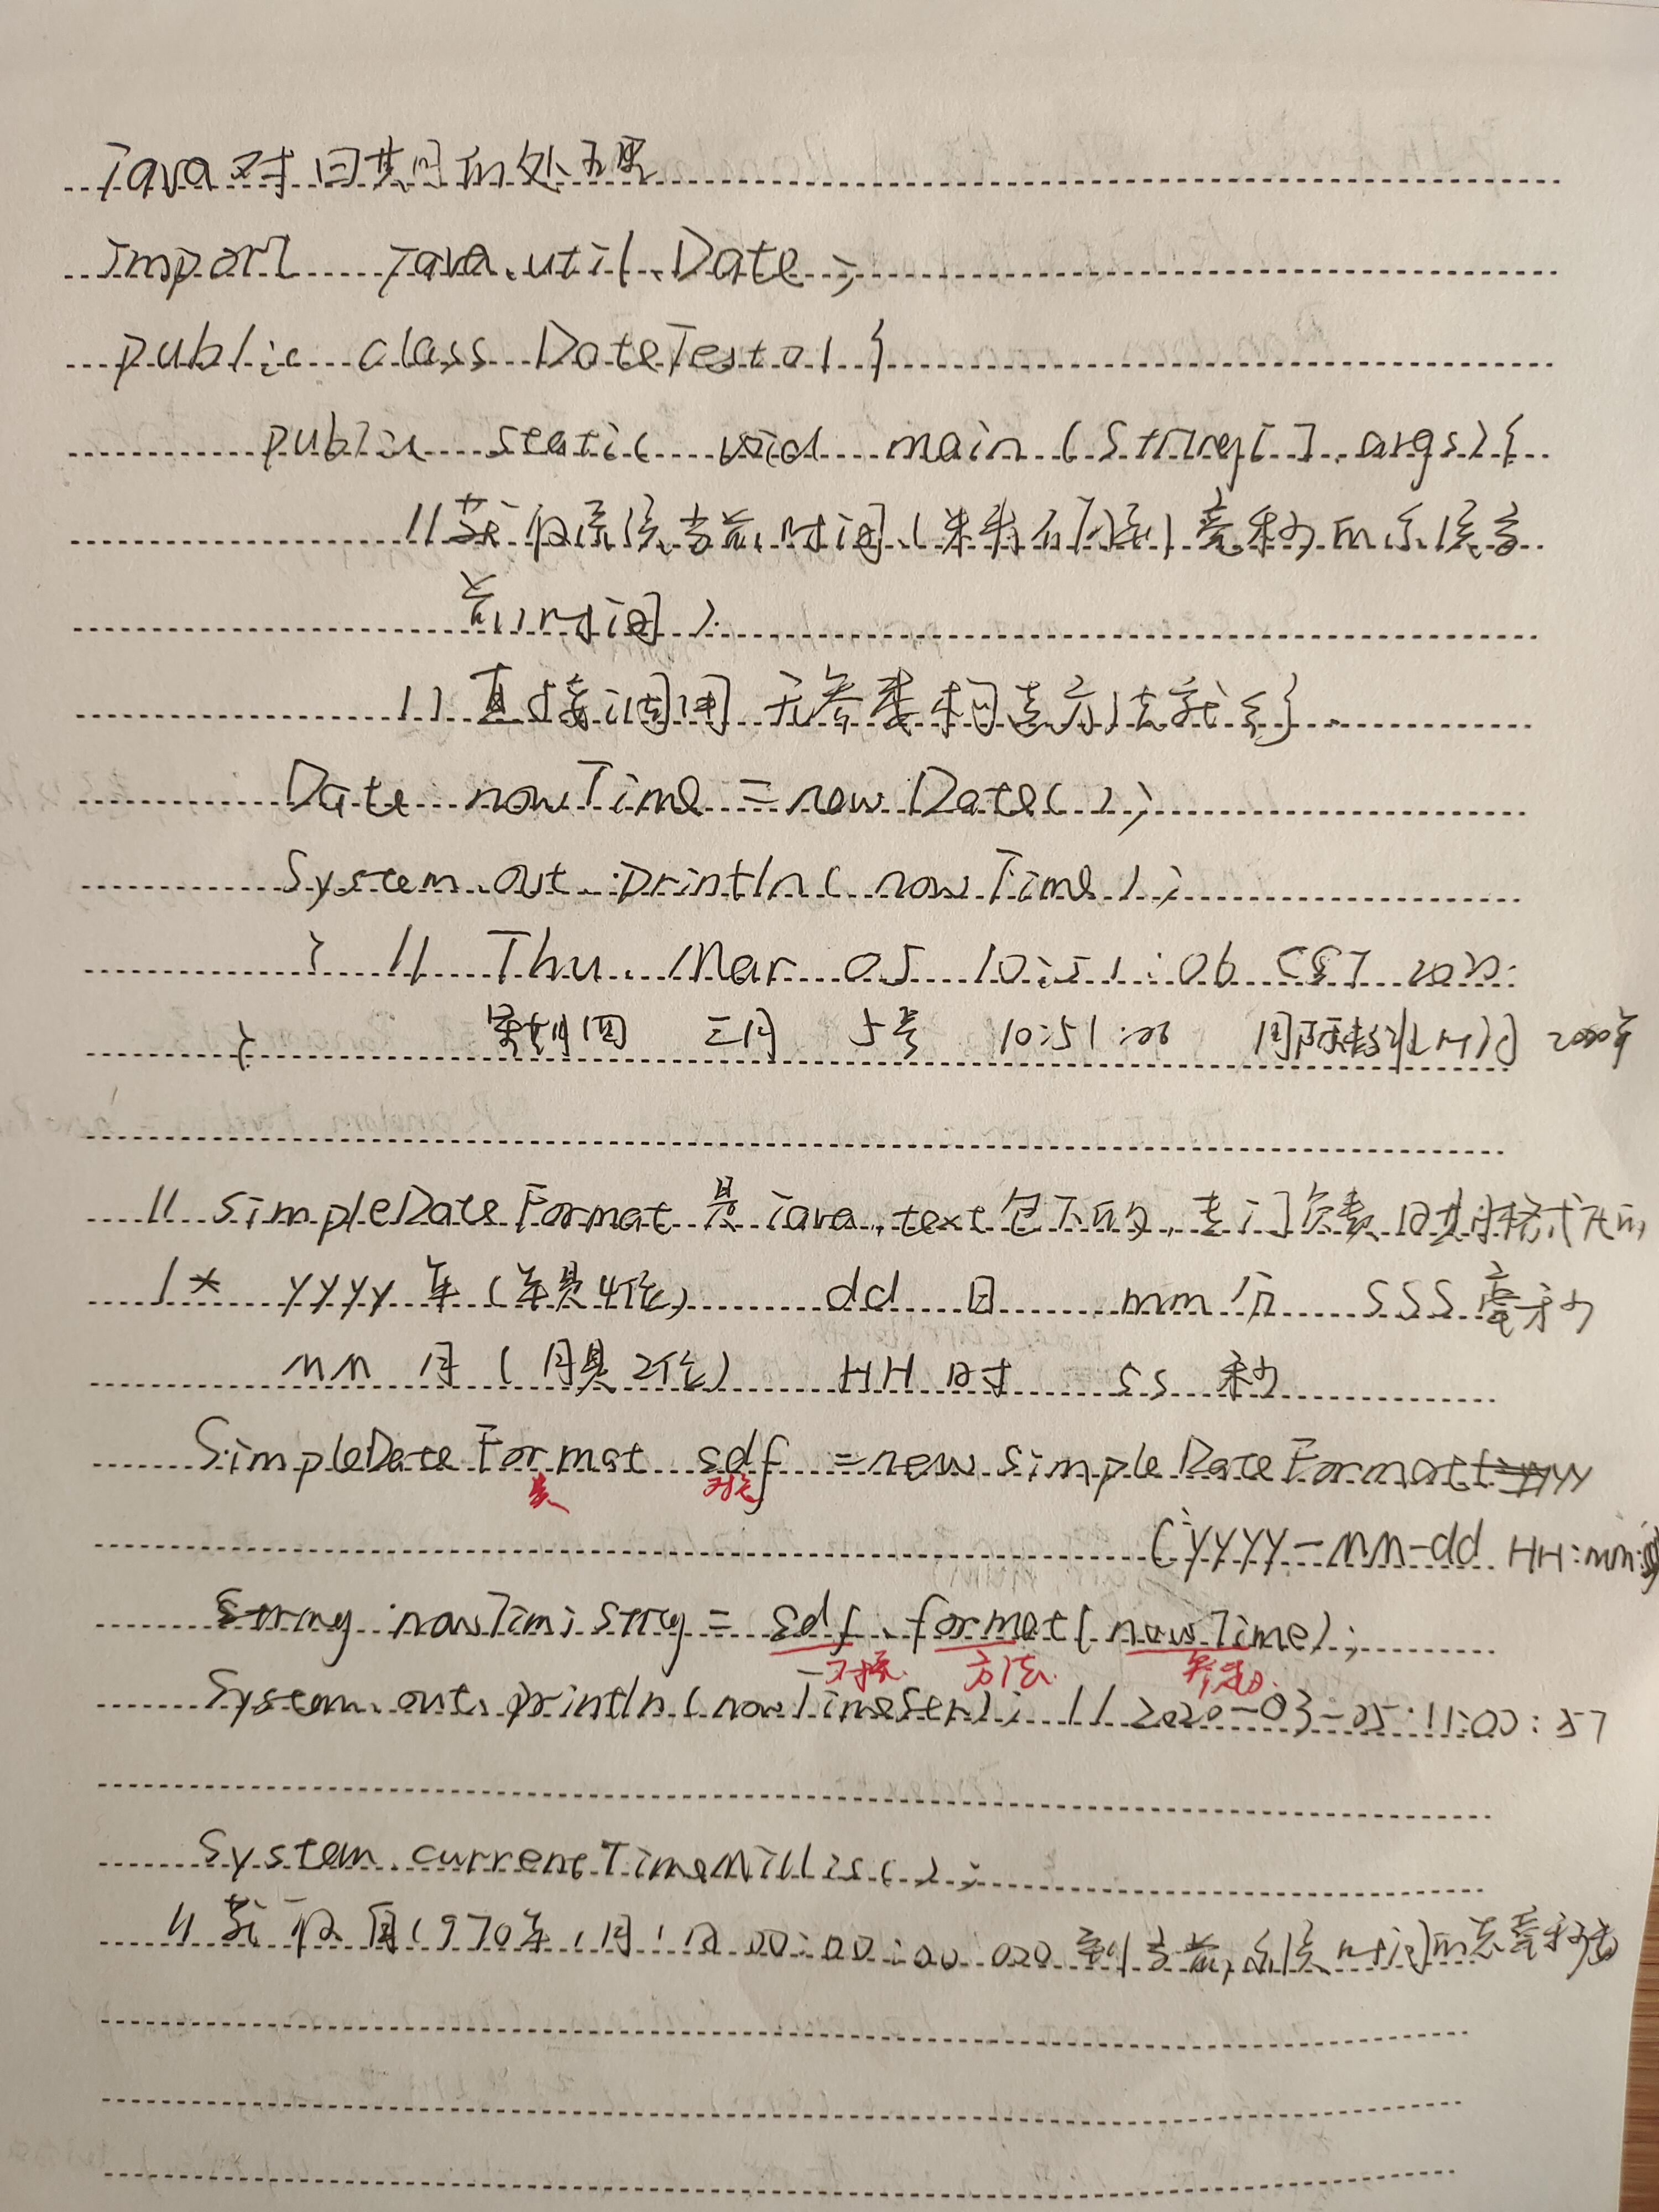 Java对日期的处理
import java.util.Date;
public class DateTest01{
public static void main(String[] args){
//获取系统当前时间(精确到毫秒的系统当
前时间)
//直接调用无参数构造方法就行.
Date nowTime = new Date();
System.out.println(nowTime);
} // Thu Mar 05 10:51:06 CST 2020
} 星期四 三月 5号 10:51:06 2020年
// SimpleDateFormat 是java.text包下的,专门负责日期格式化的
/* yyyy 年(年是4位) dd 日 mm 分 SSS 毫秒
MM 月(月是2位) HH 时 ss 秒
SimpleDateFormat sdf = new SimpleDateFormat
类 对象
("yyyy-MM-dd HH:mm:ss
String nowTimeString = sdf.format(nowTime);
对象 方法
System.out.println(nowTimeStr); // 2020-03-05 11:00:57
System.currentTimeMillis();
//获取自1970年1月1日00:00:00 000到当前系统时间的总毫秒数